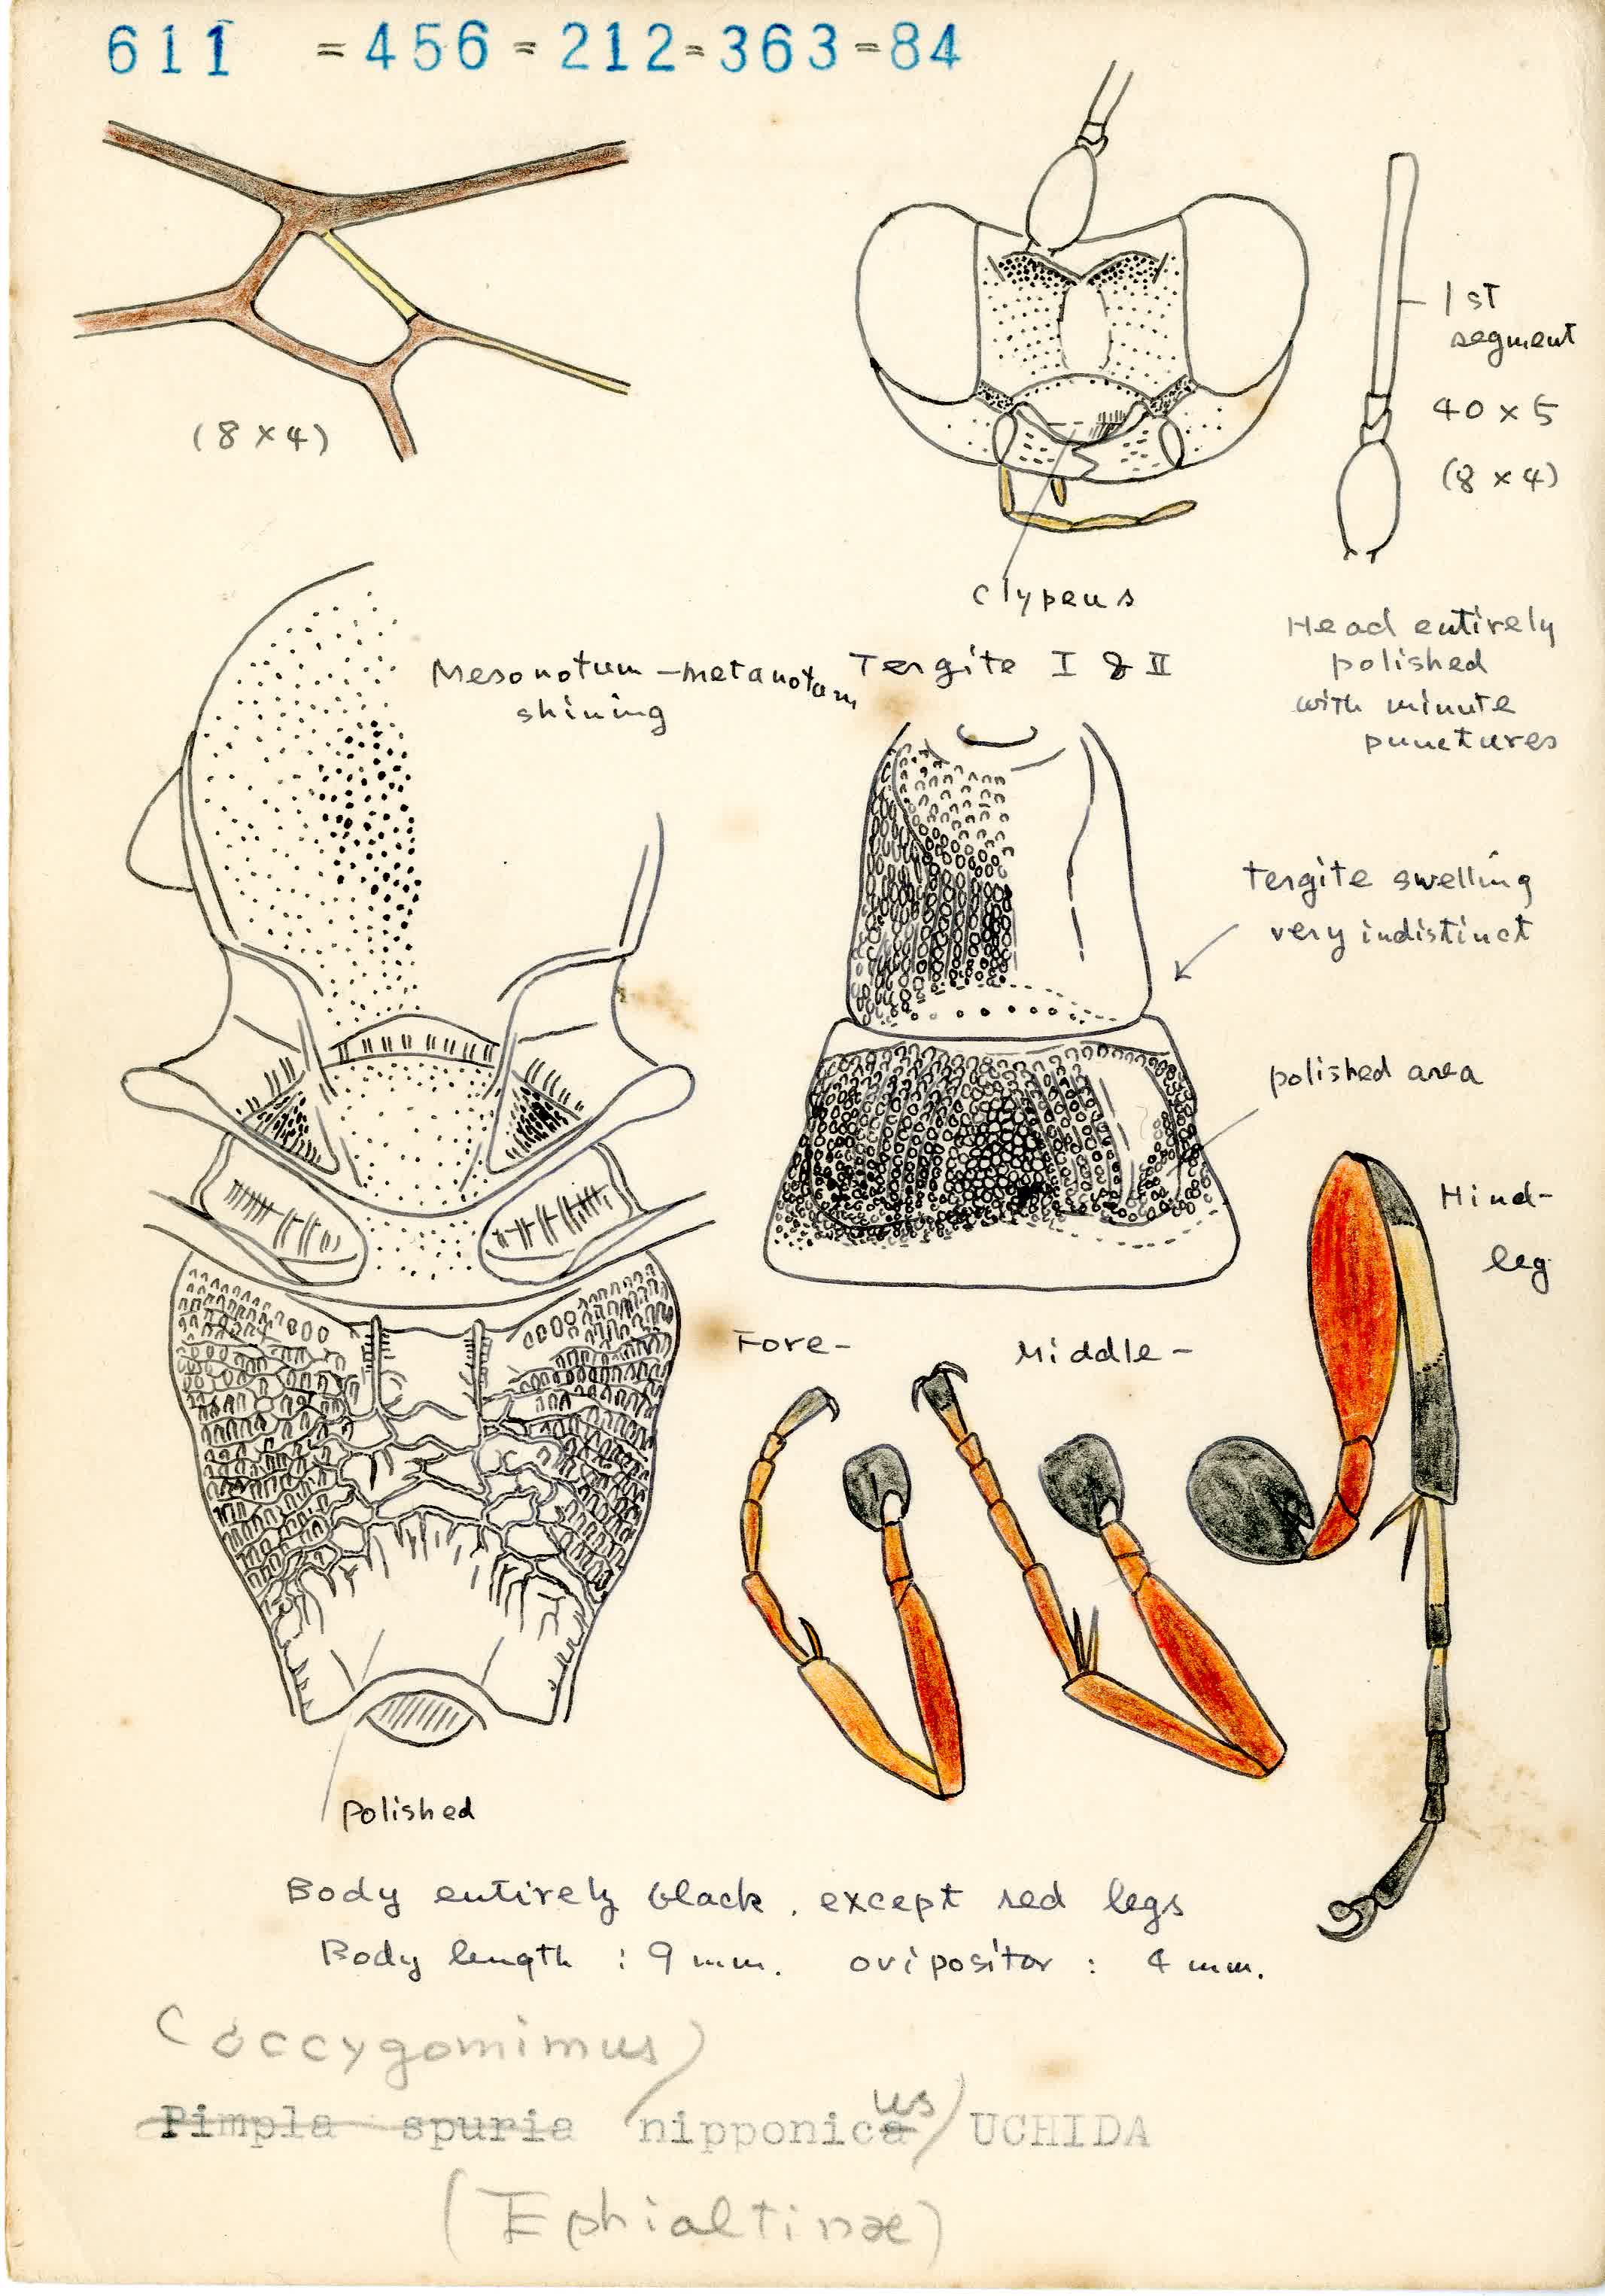 611 = 456 = 212 = 363 = 84
(8 × 4)
1st
segment
40 × 5
(8 × 4)
clypeus
Head entirely
polished
with minute
punctures
Mesonotum - metanotum
shining
Tergite I & II
tergite swelling
very indistinct
polished area
Hind-
leg
Fore-
Middle-
polished
Body entirely black, except red legs
Body length : 9 mm. ovipositor : 4 mm.
Coccygomimus
Pimpla spuria nipponica us UCHIDA
(Ephialtinae)